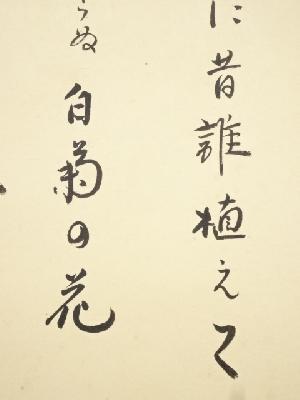 に昔誰植えて
らぬ白菊の花